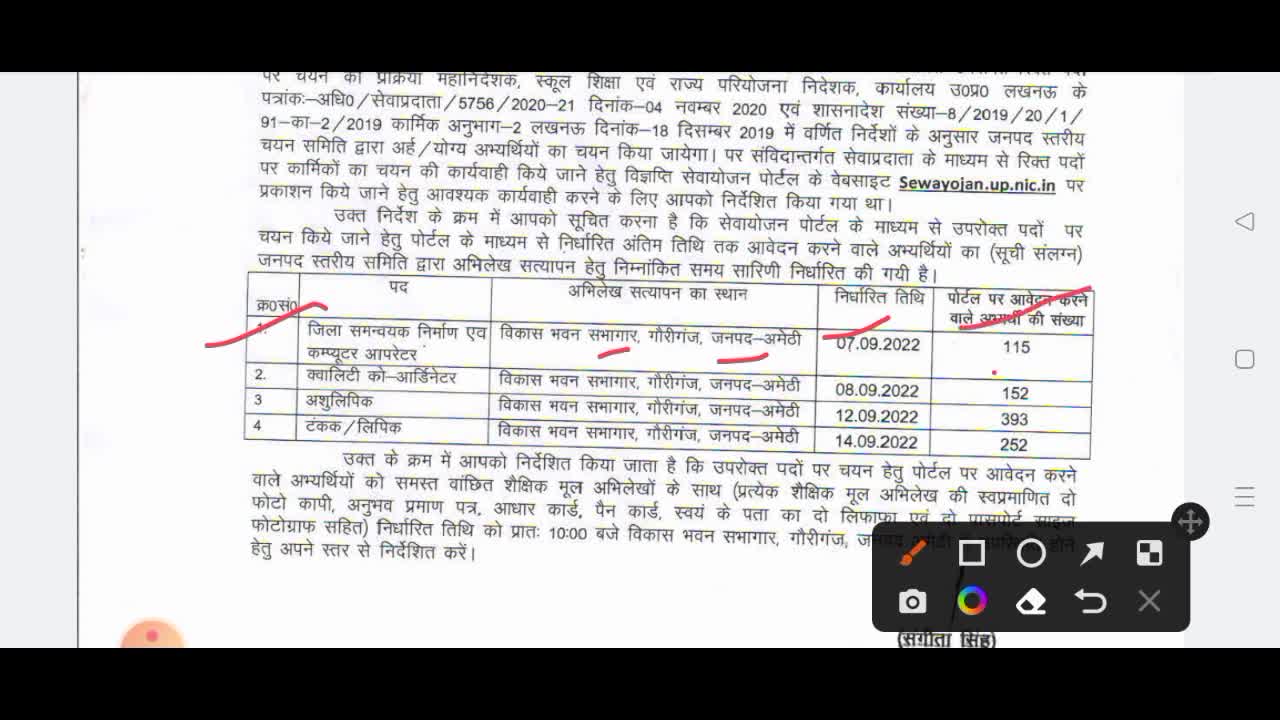 पर चयन की प्रक्रिया महानिदेशक, स्कूल शिक्षा एवं राज्य परियोजना निदेशक, कार्यालय उ0प्र0 लखनऊ के
पत्रांकः–अधि0/सेवाप्रदाता/5756/2020–21 दिनांक–04 नवम्बर 2020 एवं शासनादेश संख्या–8/2019/20/1/
91–का–2/2019 कार्मिक अनुभाग–2 लखनऊ दिनांक–18 दिसम्बर 2019 में वर्णित निर्देशों के अनुसार जनपद स्तरीय
चयन समिति द्वारा अर्ह/योग्य अभ्यर्थियों का चयन किया जायेगा। पर संविदान्तर्गत सेवाप्रदाता के माध्यम से रिक्त पदों
पर कार्मिकों का चयन की कार्यवाही किये जाने हेतु विज्ञप्ति सेवायोजन पोर्टल के वेबसाइट Sewayojan.up.nic.in पर
प्रकाशन किये जाने हेतु आवश्यक कार्यवाही करने के लिए आपको निर्देशित किया गया था।
उक्त निर्देश के क्रम में आपको सूचित करना है कि सेवायोजन पोर्टल के माध्यम से उपरोक्त पदों पर
चयन किये जाने हेतु पोर्टल के माध्यम से निर्धारित अंतिम तिथि तक आवेदन करने वाले अभ्यर्थियों का (सूची संलग्न)
जनपद स्तरीय समिति द्वारा अभिलेख सत्यापन हेतु निम्नांकित समय सारिणी निर्धारित की गयी है।
क्र0सं0 पद अभिलेख सत्यापन का स्थान निर्धारित तिथि पोर्टल पर आवेदन करने
वाले अभ्यर्थी की संख्या
1. जिला समन्वयक निर्माण एव विकास भवन सभागार, गौरीगंज, जनपद–अमेठी 07.09.2022 115
कम्प्यूटर आपरेटर
2. क्वालिटी को–आर्डिनेटर विकास भवन सभागार, गौरीगंज, जनपद–अमेठी 08.09.2022 152
3 अशुलिपिक विकास भवन सभागार, गौरीगंज, जनपद–अमेठी 12.09.2022 393
4 टंकक/लिपिक विकास भवन सभागार, गौरीगंज, जनपद–अमेठी 14.09.2022 252
उक्त के क्रम में आपको निर्देशित किया जाता है कि उपरोक्त पदों पर चयन हेतु पोर्टल पर आवेदन करने
वाले अभ्यर्थियों को समस्त वांछित शैक्षिक मूल अभिलेखों के साथ (प्रत्येक शैक्षिक मूल अभिलेख की स्वप्रमाणित दो
फोटो कापी, अनुभव प्रमाण पत्र, आधार कार्ड, पैन कार्ड, स्वयं के पता का दो लिफाफा एवं दो पासपोर्ट साइज
फोटोग्राफ सहित) निर्धारित तिथि को प्रातः 10:00 बजे विकास भवन सभागार, गौरीगंज,
हेतु अपने स्तर से निर्देशित करें।
(संगीता सिंह)